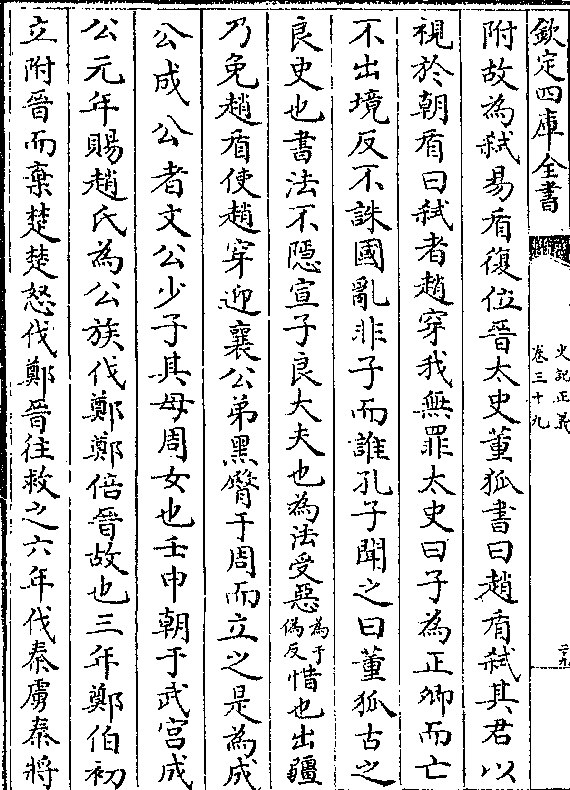 欽定四庫全書
史記正義
卷三十九
附故為弑易盾復位晉太史董狐書曰趙盾弑其君以
視於朝盾曰弑者趙穿我無罪太史曰子為正卿而亡
不出境反不誅國亂非子而誰孔子聞之曰董狐古之
良史也書法不隱宣子良大夫也為法受惡為于偽反惜也出疆
乃免趙盾使趙穿迎襄公弟黑臀于周而立之是為成
公成公者文公少子其母周女也壬申朝于武宮成
公元年賜趙氏為公族伐鄭鄭倍晉故也三年鄭伯初
立附晉而棄楚楚怒伐鄭晉往救之六年伐秦虜秦將